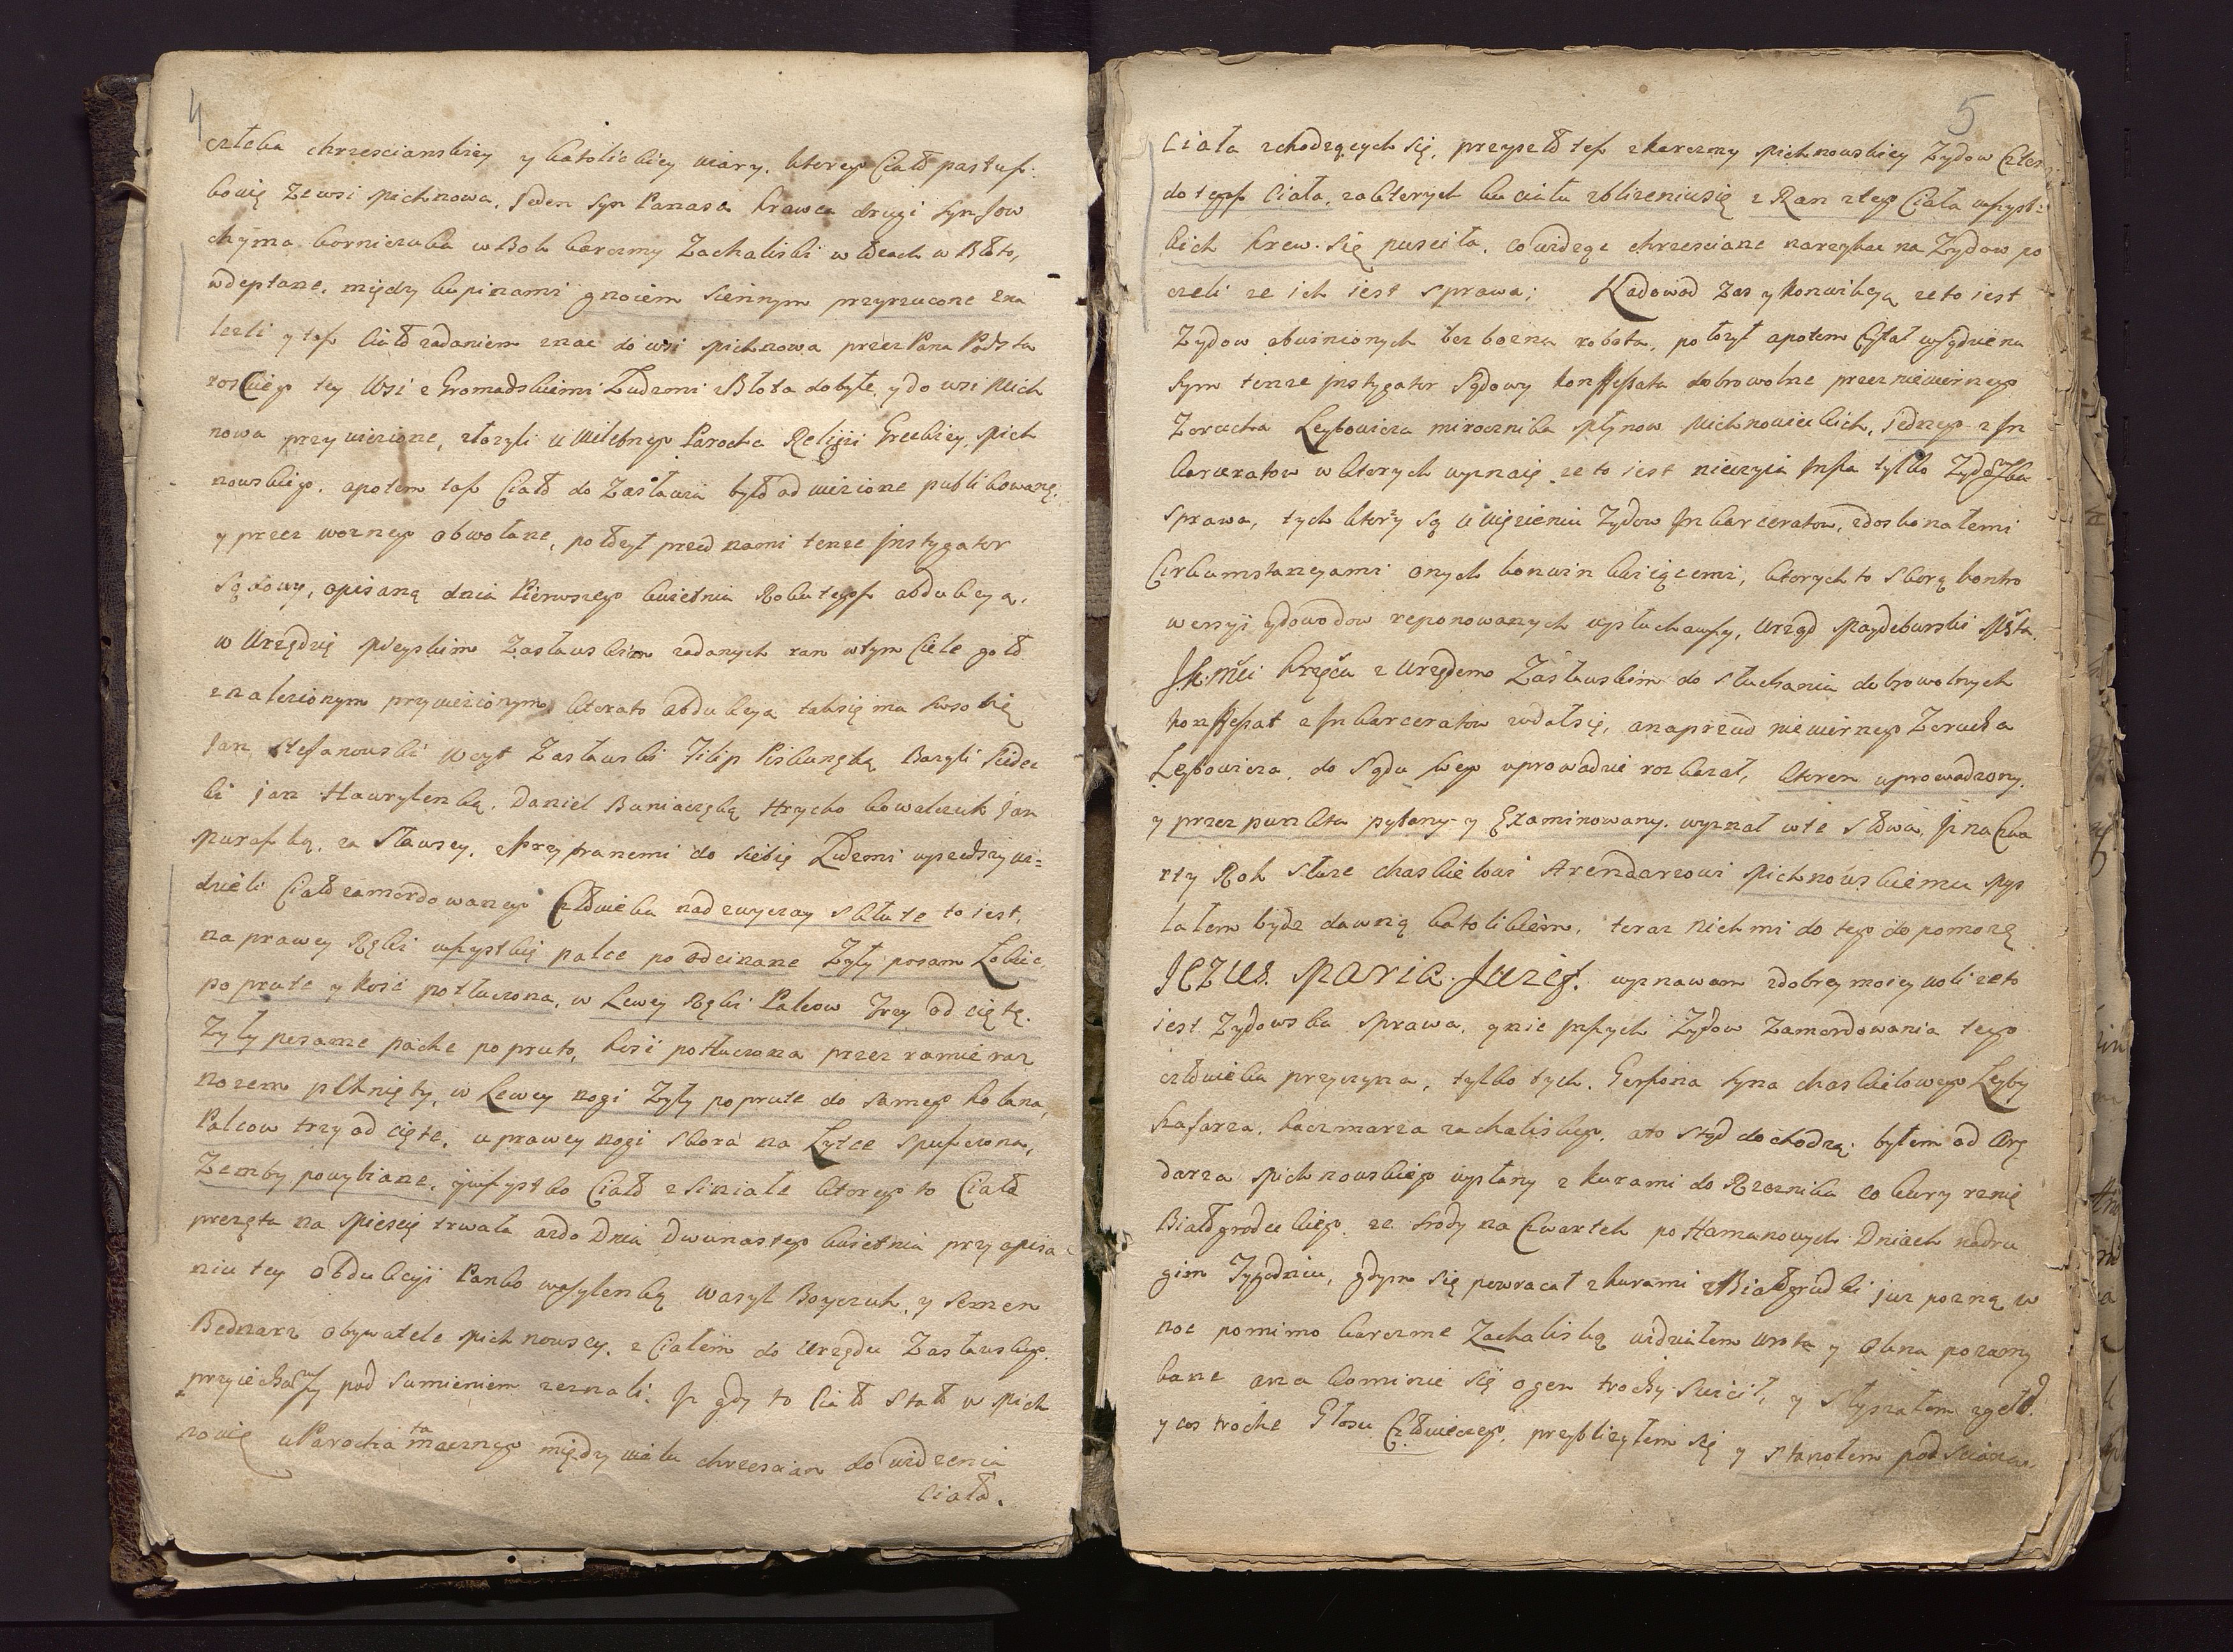 4
człeka chrzescianskiey y katolickiey wiary. ktorego Ciało pastusz:
kowie ze wsi Michnowa, Jeden syn Panasa krawca drugi syn Jow
chyma korniczuka w Bok karczmy Zachaliski w łożach w Błoto,
wdeptane, między kupinami gnoiem siennym przyrzucone zna
lezli y tosz Ciało zadaniem znac do wsi Michnowa przez Pana Podsta
rosciego tey Wsi z Gromadskiemi Ludzmi z Błota dobyte, y do wsi Mich
nowa przywiezione, złozyli u Wilebnego Parocha Religii Greckiey, Mich
nowskiego. apotem tosz Ciało do Zasławia było odwiezione publikowane,
y przez woznego obwołane, połozył przed nami tenze Jnstygator
Sądowy, opisaną dnia Pierwszego kwietnia Roku tegosz obdukcyą,
w Urzędzie Mieyskim Zasławskim zadanych ran w tym Ciele goło
znalezionym przywiezionym, ktorato obdukcya taksię ma w sobie
Jan Stefanowski Woyt Zasławski Filip Piskunęko Bazyli Siedec
ki Jan Hawrylenko, Daniel Buniaczęko Hrycko kowalczuk Jan
Muraszko, za Sławscy, z Przybranemi do siebie Ludzmi wyszedszy wi=
dzieli Ciało zamordowanego Człowieka nadzwyczay skłute to iest,
na prawey Ręki wszystkie palce poodcinane Zyły posam Łokiec,
poprute y kosc potłuczona, w Lewey Ręki Palcow Trzy odcięte.
Zyły posame pache popruto, kosc potłuczona przez ramie raz
nozem pchnięty, w Lewey nogi Zyły poprute do samego kolana,
Palcow trzy odcięte, u prawey nogi skora na Łytce spuszczona,
Zemby powybiane, y wszystko Ciało zsiniałe ktorego to Ciała
prezęta na Miescie trwała azdo Dnia Dwunastego kwietnia przy opisa
niu tey Obdukcyi Panko Wasylenko Wasyl Boyczuk, y Semen
Bednarz obywatele Michnowscy, z Ciałem do Urzędu Zasławskiego.
przyiechawszy pod sumieniem zeznali: Jz gdy to Ciało stało w Mich
nowie u Parocha tamecznego między wielu chrzescian do widzenia
Ciała.
5
Ciała schodzących się, przyszło tesz z karczmy Michnowskiey Zydow Czter
do tegosz Ciała, zaktorych ku ciału zblizeniusię z Ran ztego Ciała wszyst=
kich krew się pusciła, co widząc chrzescianie narzekac na Zydow po
czeli ze ich iest sprawa; Nadowod zas y konwikcyą zeto iest
Zydow obwinionych bezbozna robota, połozył apotem Czytał w sądzie na
szym tenze Jnstygator Sądowy konfessata dobrowolne przez niewiernego
Zorucha Leybowicza mirocznika Młynow Michnowieckich, Jednego z Jn
karceratow w ktorych wyznaie ze to iest nieczyia Jnsza tylko Zydowska
sprawa, tych ktorzy są w więzieniu Zydow Jnkarceratow, zdoskonałemi
Cirkumstancyami onych konwinkuiącemi, ktorych to skorą kontro
wersyi y dowodow reponowanych wysłuchawszy, Urząd Maydeburski Mta.
J.K.Mci Krzęca z Urzędem Zasławskim do słuchania dobrowolnych
konfessat z Jnkarceratow udałsię, a naprzod niewiernego Zorucha
Leybowicza, do Sądu swego wprowadzic rozkazał, ktoren wprowadzony,
y przez punkta pytany y Examinowany. wyznał w te słowa, Jz na Czwa
rty Rok słuze chaskielowi Arendarzowi Michnowskiemu Mys
lałem bydz dawno katolikiem, teraz niech mi do tego dopomozę
JEZUS. Maria. Juzef. wyznawam z dobrey moiey woli zeto
iest Zydowska sprawa, y nie Jnszych Zydow Zamordowania tego
człowieka przyczyna, tylko tych. Gerszona syna chaskielowego Leyby
Szafarza, kaczmarza zachaliskiego, ato stąd dochodzę: byłem od Arę
darza Michnowskiego wysłany z kurami do Rzeznika co kury rznie
Białogrodeckiego. ze srody na Czwartek po Hamanowych Dniach na dru
gim Tygodniu, gdym się powracał z kurami z Białogrudki juz pozno w
noc pomimo karczme Zachaliską widziałem wrota y okna pozamy
kane ana kominie się ogen trochy swiecił, y słyszałem zgełk
y cos troche Głosu Człowieczego, przyblizyłem się y stanołem pod scianą